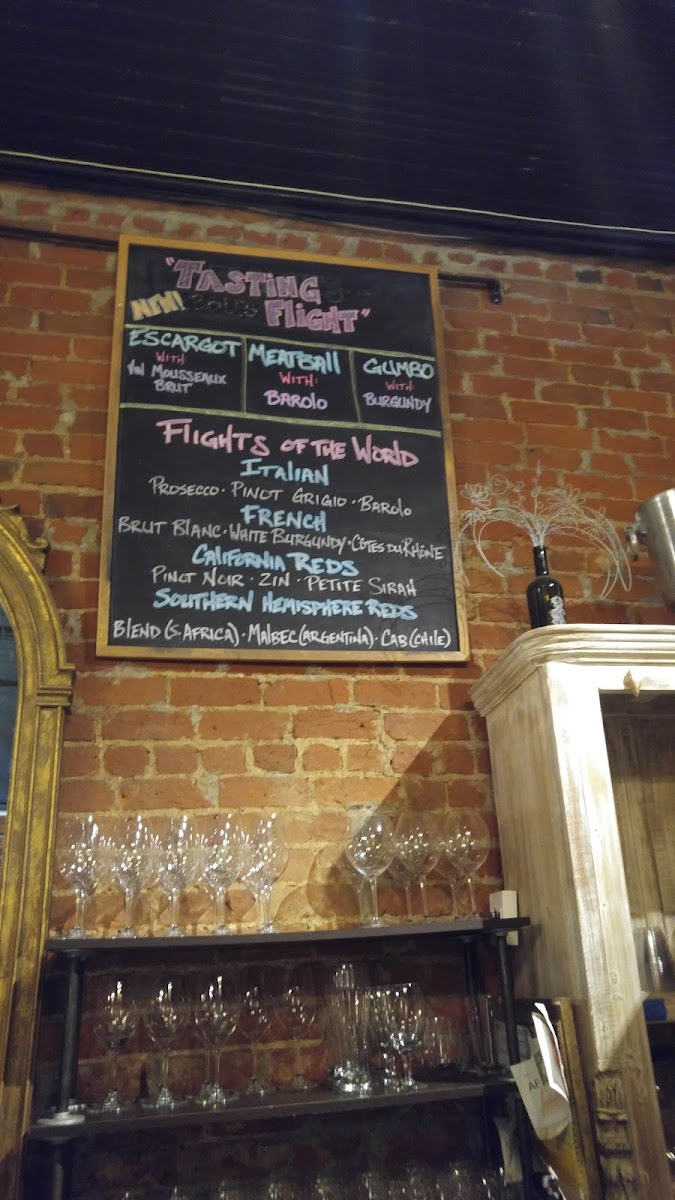 "TASTING
NEW! FLIGHT"
ESCARGOT
WITH:
VIN MOUSSEAUX
BRUT
MEATBALL
WITH:
BAROLO
GUMBO
WITH:
BURGUNDY
FLIGHTS OF THE WORLD
ITALIAN
PROSECCO · PINOT GRIGIO · BAROLO
FRENCH
BRUT BLANC · WHITE BURGUNDY · CÔTES DU RHÔNE
CALIFORNIA REDS
PINOT NOIR · ZIN · PETITE SIRAH
SOUTHERN HEMISPHERE REDS
BLEND (S. AFRICA) · MALBEC (ARGENTINA) · CAB (CHILE)
AF